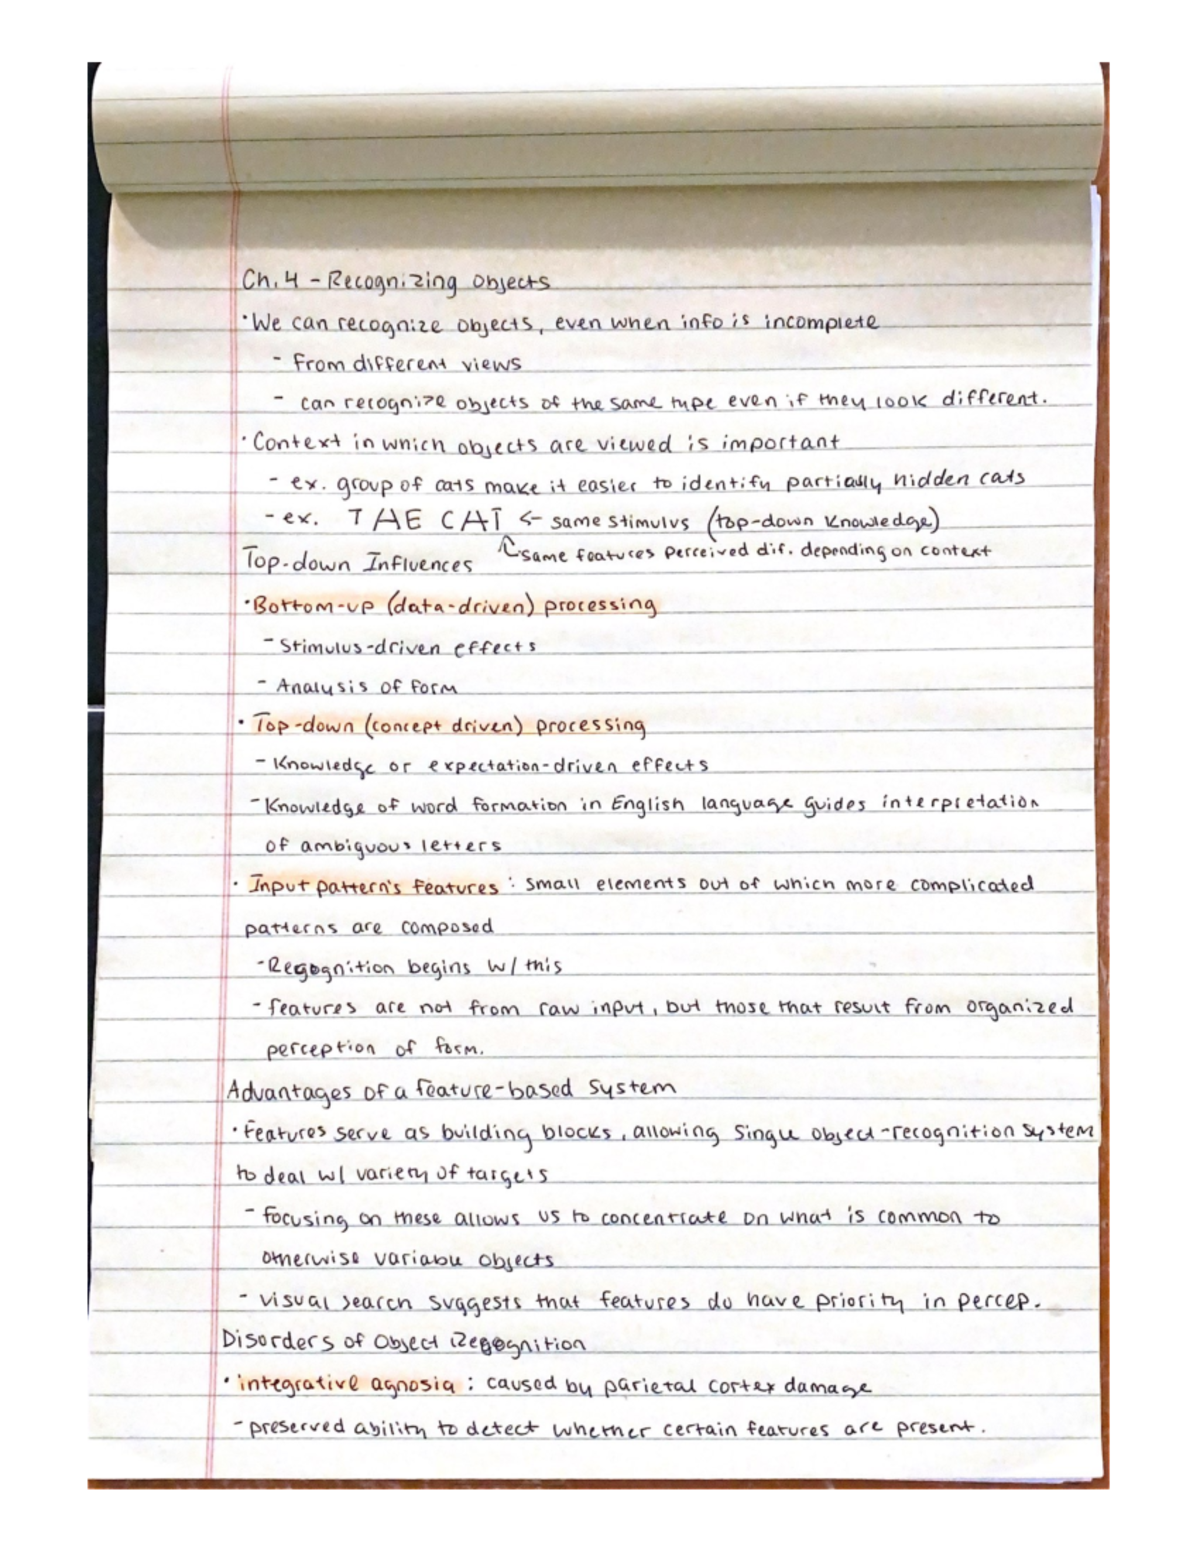 Ch. 4 - Recognizing Objects
· We can recognize objects, even when info is incomplete
- from different views
- can recognize objects of the same type even if they look different.
· Context in which objects are viewed is important
- ex. group of cats make it easier to identify partially hidden cats
- ex. TAE CAT ← same stimulus (top-down knowledge)
same features perceived dif. depending on context
Top-down Influences
· Bottom-up (data-driven) processing
- Stimulus-driven effects
- Analysis of form
· Top-down (concept driven) processing
- Knowledge or expectation-driven effects
- Knowledge of word formation in English language guides interpretation
of ambiguous letters
· Input pattern's features : small elements out of which more complicated
patterns are composed
- Recognition begins w/ this
- features are not from raw input, but those that result from organized
perception of form.
Advantages of a feature-based system
· Features serve as building blocks, allowing single object-recognition system
to deal w/ variety of targets
- focusing on these allows us to concentrate on what is common to
otherwise variable objects
- visual search suggests that features do have priority in percep.
Disorders of Object Recognition
· integrative agnosia : caused by parietal cortex damage
- preserved ability to detect whether certain features are present.